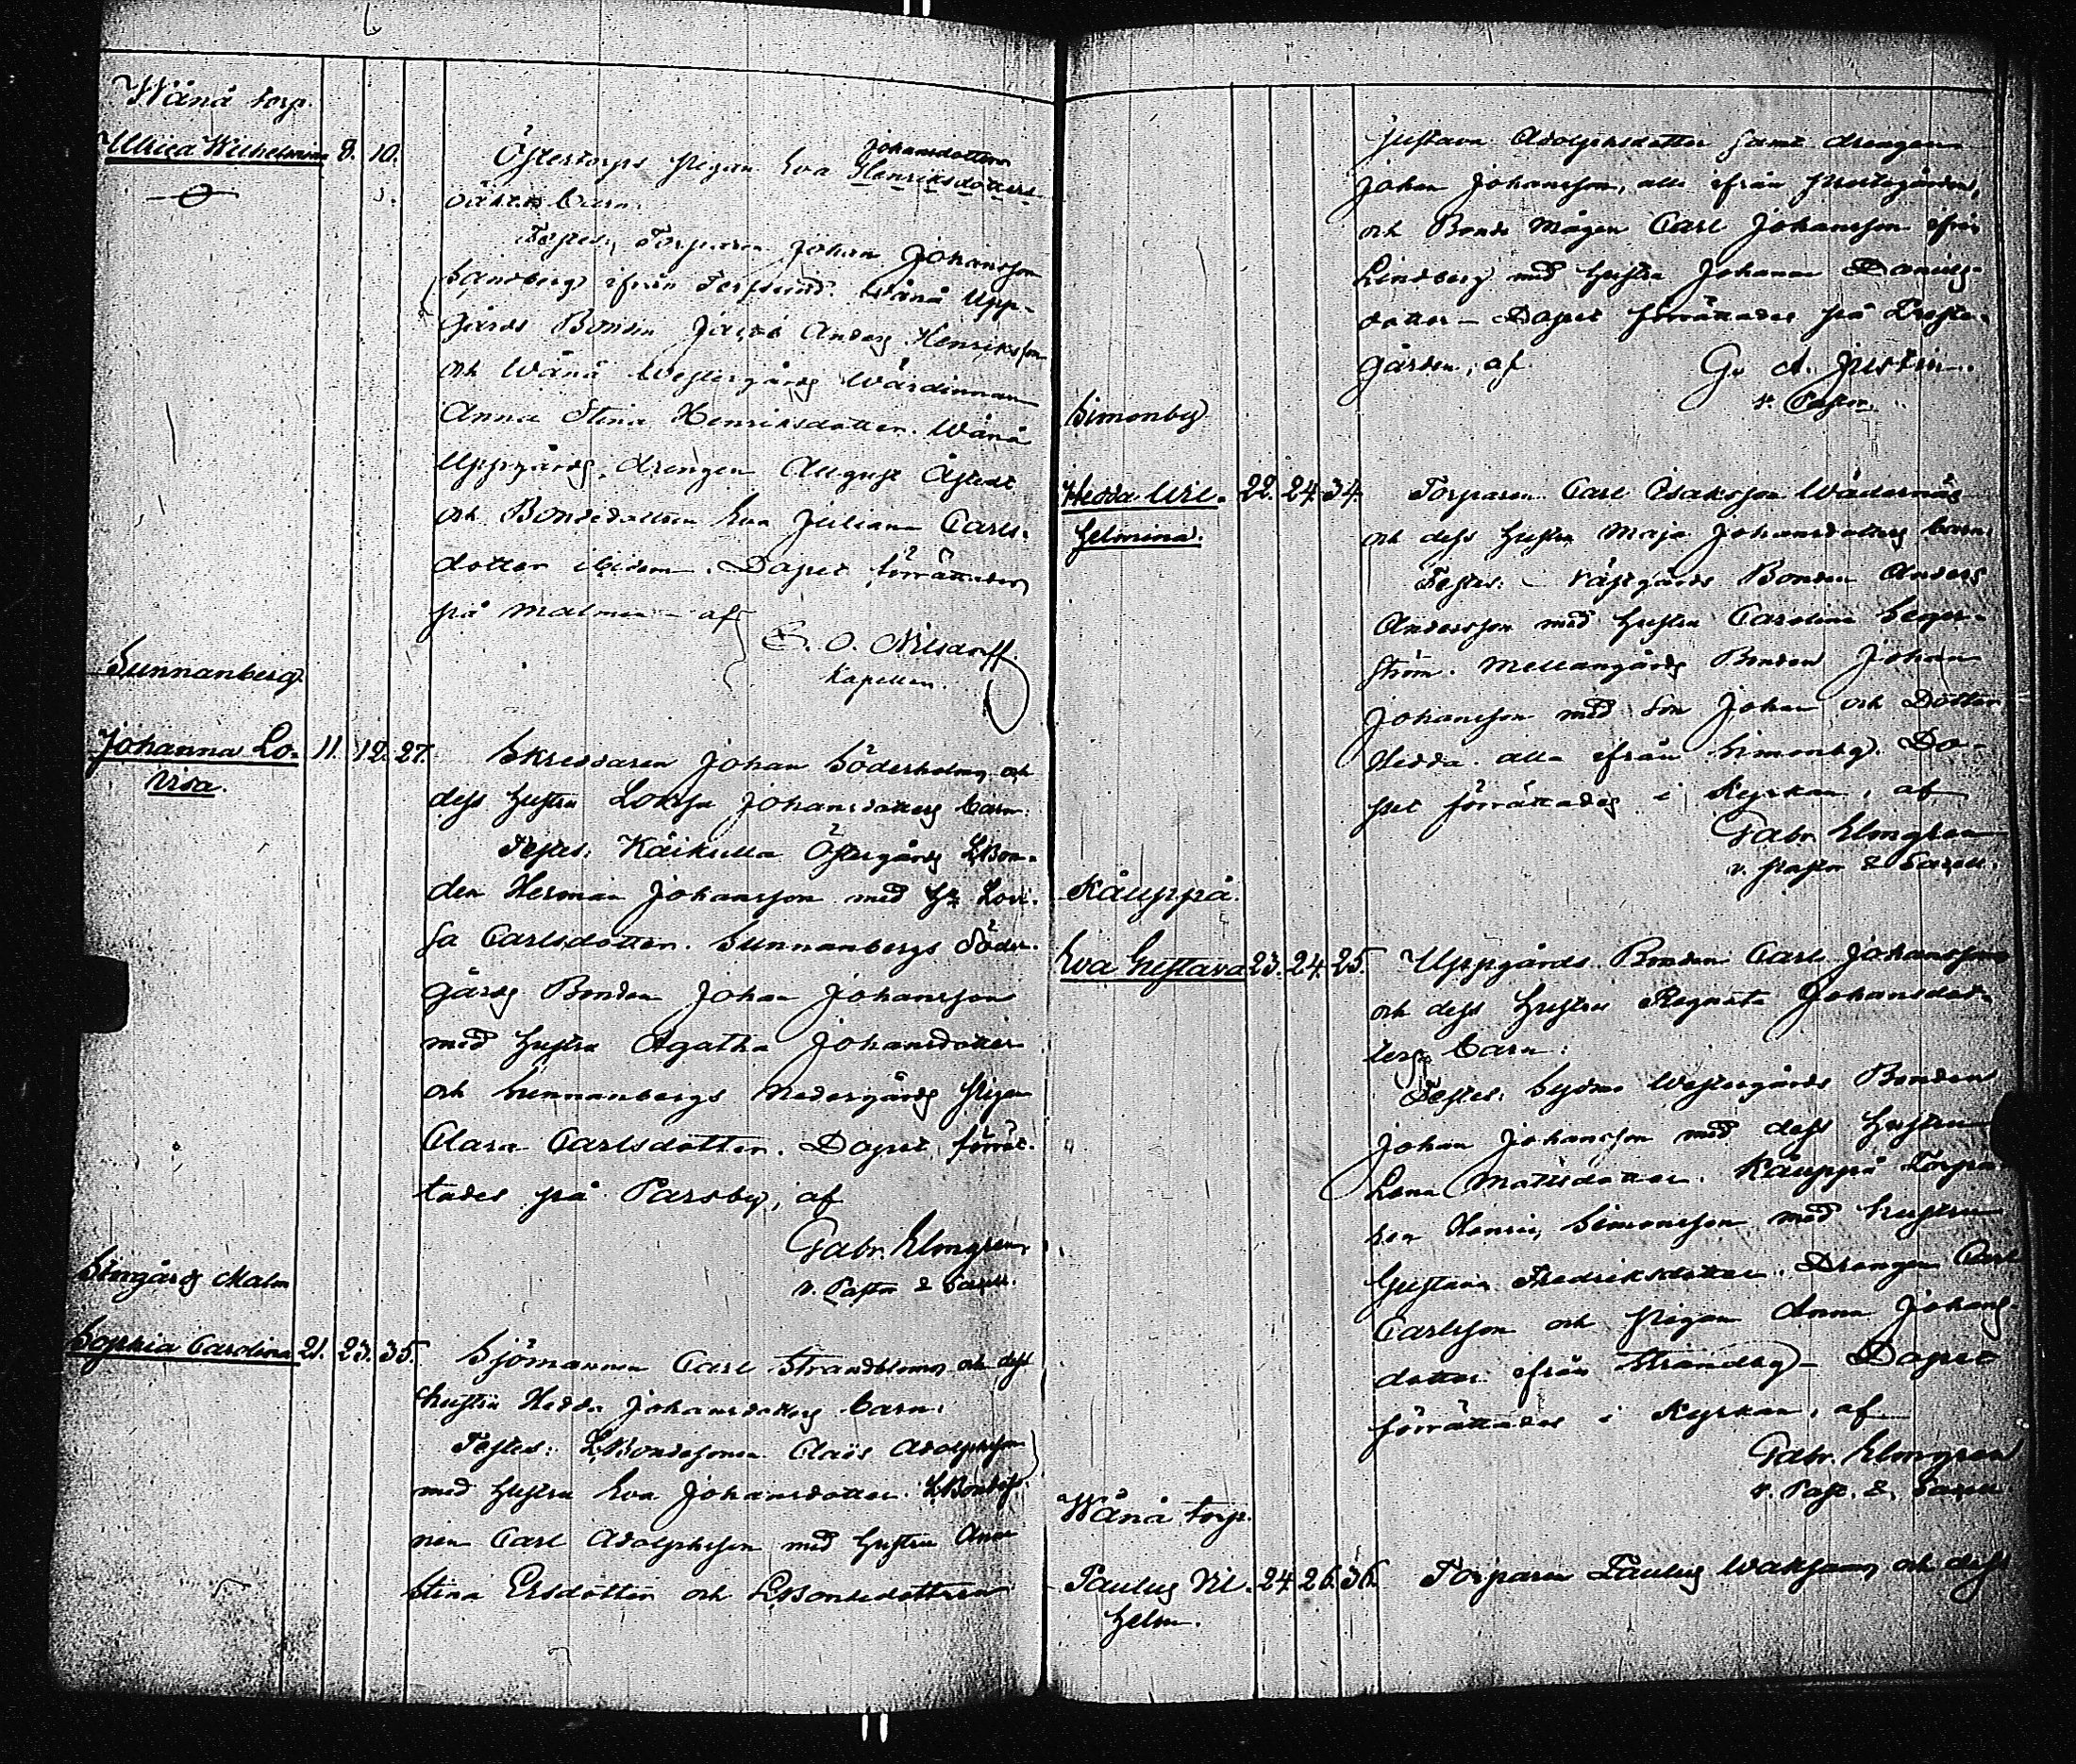 Wånå torp.
Ulrica Wilhelmina 8. 10. Östertorps pigan Eva Henriksdotters Johansdotters
oäkta barn.
Testes: Torparen Johan Johansson
Sandberg ifrån Wånå Upp-
gårds Bonden Jacob Anders Henriksson
och Wånå Westergårds Wärdinnan
Anna Stina Henriksdotter. Wånå
Uppgårds drengen August
och Bondedottren Eva Juliana Carls-
dotter ibidem. Dopet förrättades
på Malmen af
Kapellan.
Sunnanberg
Johanna Lo- 11. 12. 27. Skreddaren Johan Söderholms och
visa. dess hustru Lovisa Johansdotters barn.
Testes: Kärkulla Östergårds LBon-
den Herman Johansson med h. Lovi-
sa Carlsdotter. Sunnanbergs Söder-
gårds Bonden Johan Johansson
med hustru Agatha Johansdotter
och Sunnanbergs Nedergårds pigan
Clara Carlsdotter. Dopet förrät-
tades på Parsby, af
Gabr. Elmgren
v. Pastor & Capell.
Malm
Sophia Carolina 21. 23. 35. Sjömannen Carl Strandbloms och dess
hustru Hedda Johansdotters barn.
Testes: LBondesonen Claës Adolphsson
med hustru Eva Johansdotter. LBondeso-
nen Carl Adolphsson med hustru Anna
Stina Ersdotter och LBondedottren
Gustava Adolphsdotter samt drengen
Johan Johansson, alla ifrån Prestegården,
och Bonde Mågen Carl Johansson ifrån
Lindberg med hustru Johanna Daniels-
dotter – Dopet förrättades på Preste-
gården, af G. A. Justin.
v. Pastor.
Simonby
Hedda Wil- 22. 24. 34. Torparen Carl Isaksson Wädernäs
helmina. och dess hustru Maja Johansdotters barn.
Testes: Västgårds Bonden Anders
Andersson med hustru Carolina Seger-
ström. Mellangårds Bonden Johan
Johansson med Son Johan och Dotter
Hedda. alla ifrån Simonby. Do-
pet förrättades i Kyrkan, af
Gabr. Elmgren
v. Pastor & Capell.
Kåuppå.
Eva Gustava 23. 24. 25. Uppgårds Bonden Carl Johanssons
och dess hustru Regnata Johansdot-
ters barn:
Testes: Westergårds Bonden
Johan Johansson med dess hustru
Lena Mattsdotter. Kåuppå Torpa-
ren Henric Simonsson med hustru
Gustava Fredriksdotter. Drengen Carl
Carlsson och pigan Anna Johans-
dotter ifrån Strandby – Dopet
förrättades i Kyrkan, af
Gabr. Elmgren
v. Past. & Capell
Wånå torp.
Paulus Vil- 24. 26. 36. Torparen Paulus och dess
helm.